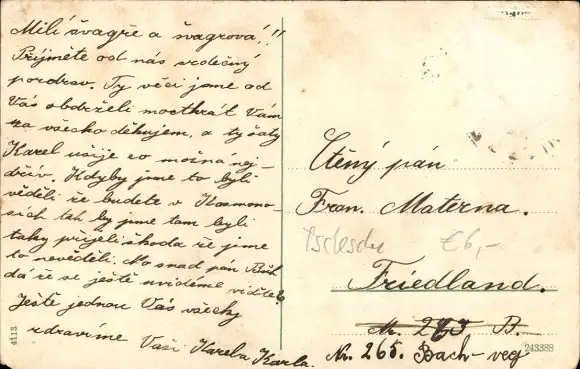 Milí švagře a švagrová!!
Přijměte od nás srdečný
pozdrav. Ty věci jsme od
Vás obdrželi mockrát Vám
za všecko děkujem, a ty šaty
Karel ušije co možna nej-
dřív. Kdyby jsme to byli
věděli že budete v Kosmono-
sích tak by jsme tam byli
taky přijeli škoda že jsme
to nevěděli. No snad pán Bůh
dá že se ještě uvidíme
Ještě jednou Vás všecky
zdravíme Vaši Karel a Karla.
Ctěný pán
Fran. Materna.
€6,-
Friedland.
Nr. 273 B.
Nr. 265. Bach-weg
4113
243388